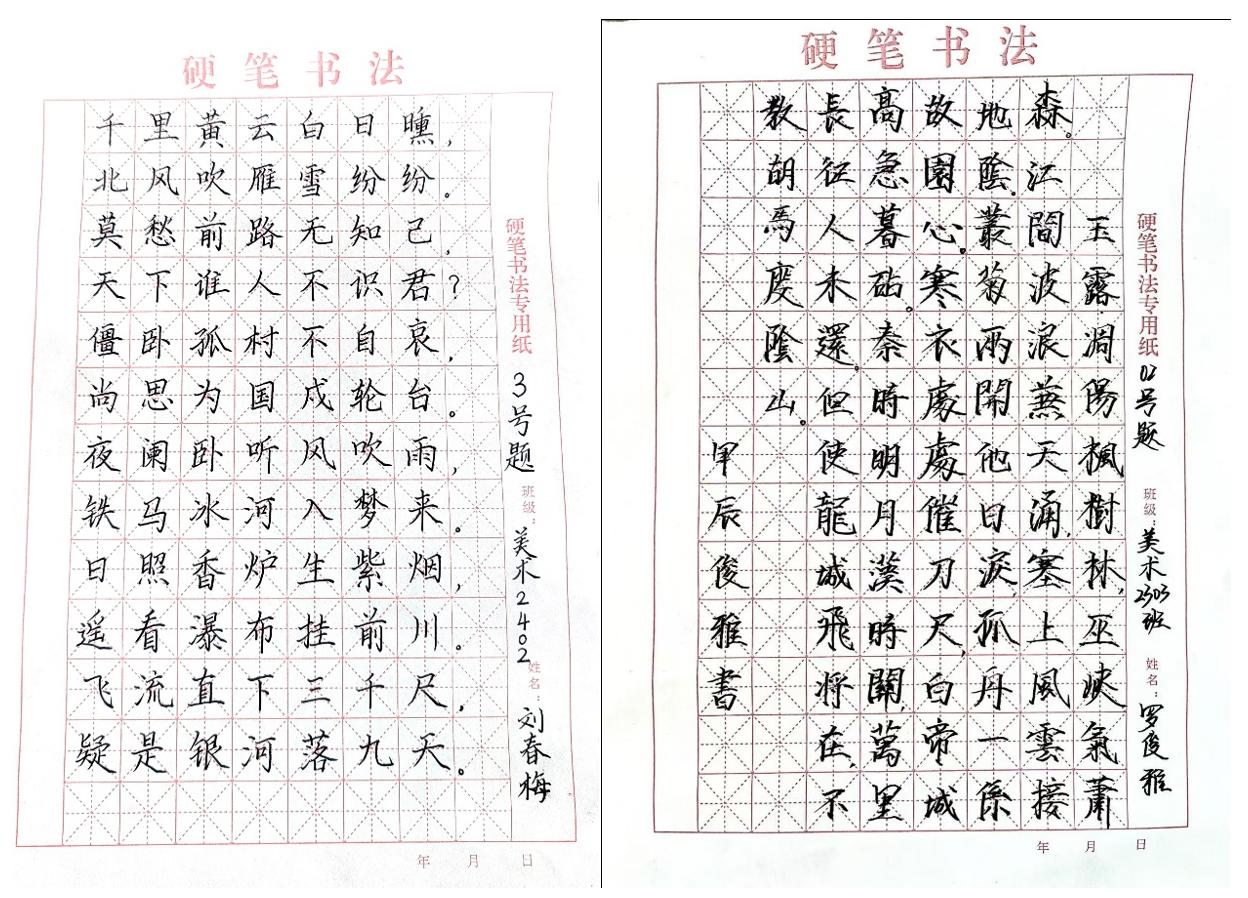 硬笔书法
千里黄云白日曛，
北风吹雁雪纷纷。
莫愁前路无知己，
天下谁人不识君？
僵卧孤村不自哀，
尚思为国戍轮台。
夜阑卧听风吹雨，
铁马冰河入梦来。
日照香炉生紫烟，
遥看瀑布挂前川。
飞流直下三千尺，
疑是银河落九天。
硬笔书法专用纸 3号题 班级：美术2402 姓名：刘春梅
年 月 日
硬笔书法
硬笔书法专用纸 02号题 班级：美术2303班 姓名：罗俊雅
玉露凋傷楓樹林，巫峽氣蕭
森。江間波浪兼天涌，塞上風雲接
地陰。叢菊兩開他日淚，孤舟一係
故園心。寒衣處處催刀尺，白帝城
高急暮砧。秦時明月漢時關萬里
長征人未還。但使龍城飛将在，不
教胡馬度陰山。
甲辰俊雅書
年 月 日